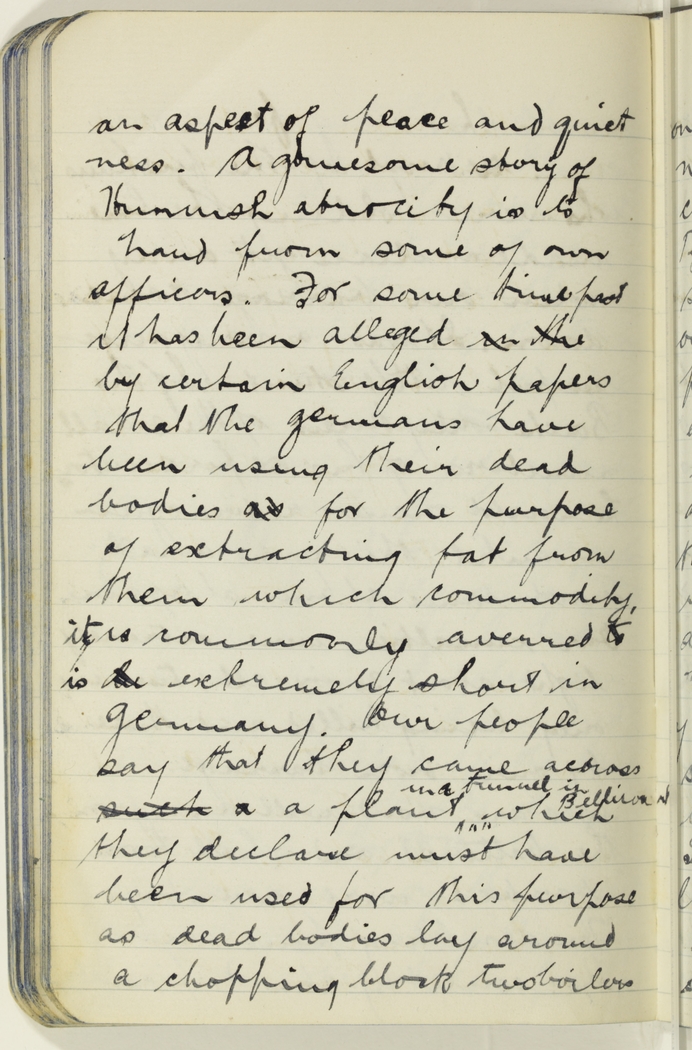 an aspect of peace and quiet
ness. A gruesome story of
Hunnish atrocity is to
hand from some of own
officers. For some time past
it has been alleged in the
by certain English papers
that the germans have
been using their dead
bodies as for the purpose
of extracting fat from
them which commodity,
it is commonly averred to
is be extremely short in
Germany. Our people
say that they came across
in a tunnel in
such a a plant which
they declare must have
been used for this purpose
as dead bodies lay around
a chopping block two boilers